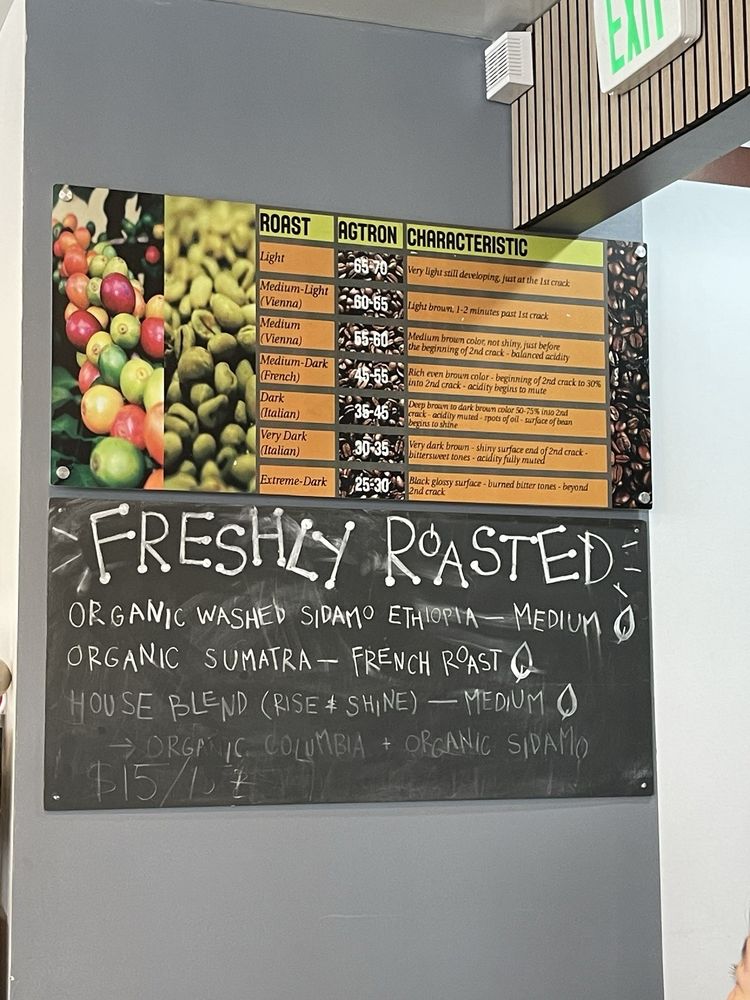 EXIT
ROAST AGTRON CHARACTERISTIC
Light 65-70 Very light still developing, just at the 1st crack
Medium-Light
(Vienna) 60-65 Light brown, 1-2 minutes past 1st crack
Medium
(Vienna) 55-60 Medium brown color, not shiny, just before
the beginning of 2nd crack - balanced acidity
Medium-Dark
(French) 45-55 Rich even brown color - beginning of 2nd crack to 30%
into 2nd crack - acidity begins to mute
Dark
(Italian) 35-45 Deep brown to dark brown color 50-75% into 2nd
crack - acidity muted - spots of oil - surface of bean
begins to shine
Very Dark
(Italian) 30-35 Very dark brown - shiny surface end of 2nd crack -
bittersweet tones - acidity fully muted
Extreme-Dark 25-30 Black glossy surface - burned bitter tones - beyond
2nd crack
FRESHLY ROASTED
ORGANIC WASHED SIDAMO ETHIOPIA — MEDIUM
ORGANIC SUMATRA — FRENCH ROAST
HOUSE BLEND (RISE & SHINE) — MEDIUM
→ ORGANIC COLUMBIA + ORGANIC SIDAMO
$15/